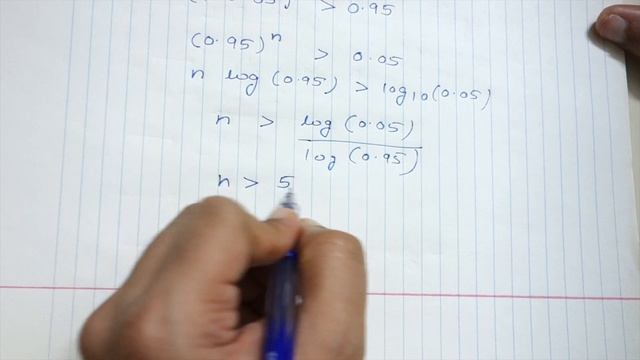 > 0.95
(0.95)^n > 0.05
n log (0.95) > log₁₀(0.05)
n > log (0.05)
log (0.95)
n > 5